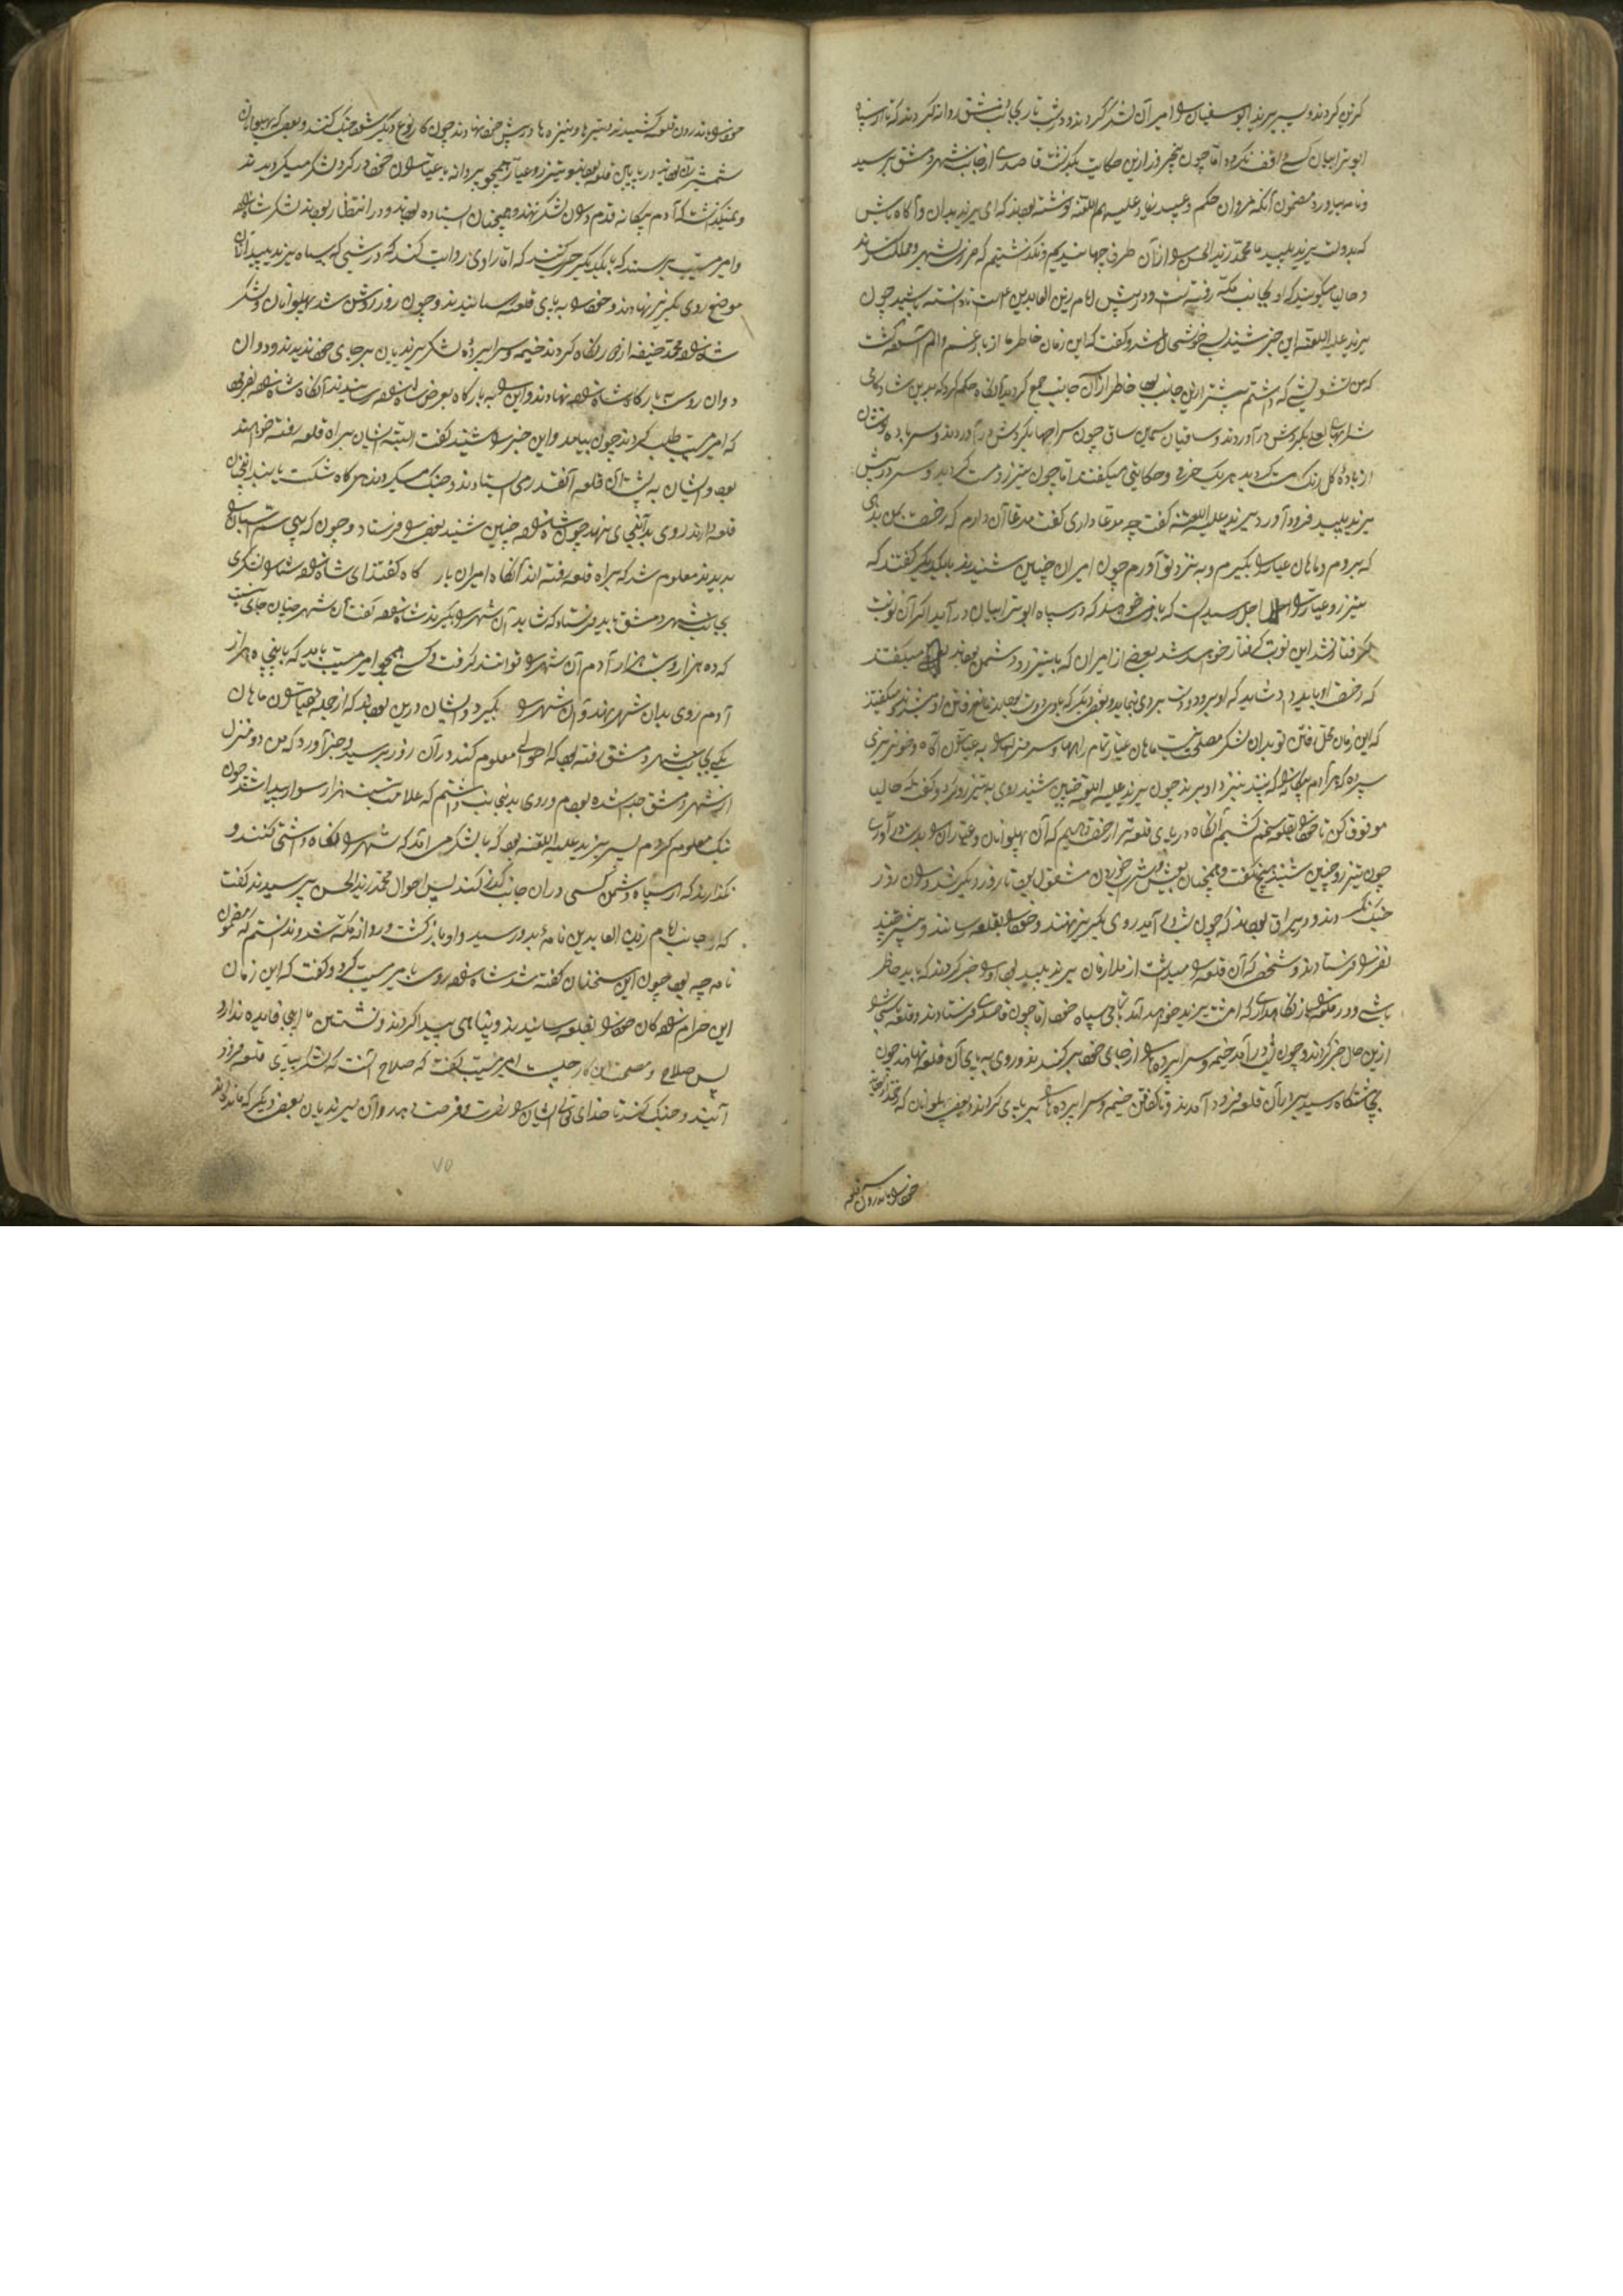 کزین کردند و پسر یزید ابوسفیان را امیر آن لشکر کردند و در شب تاریک بجانب دمشق روانه کردند که تا از سپاه
ابوترابیان کسی واقف نکردد اما چون پنجروز ازین حکایت بگذشت قاصدی از جانب شهر دمشق برسید
و نامه بیاورد مضمون آنکه مروان حکم و عبید زیاد علیهم اللعنه نوشته بودند که ای یزید بدان و آگاه باش
که بدولت یزید پلید ما محمد زید الحسن را از آن طرف جهانیدیم و نگذاشتیم که خرابی شهر و مملکت رساند
و حالیا میگویند که او بجانب مکه رفته است و در پیش امام زین العابدین است تا دانسته باشید چون
یزید علیه اللعنه این خبر شنید بسی خوشحال شد و گفت که این زمان خاطر ما از بار غم و الم آسوده گشت
که من تشویشی که داشتم بیشتر ازین جانب بود خاطر از آن جانب جمع کردید آنگاه حکم کرد که بدین شادکامی
شرابهای لعلی بگردش در آوردند و ساقیان سیمین ساق چون سراحیها بگردش در آوردند و سر باده نوشان
از بادهٔ گل رنگ مست گردید هر یک حرفی و حکایتی میگفتند اما چون تیزرو مست گردید و سر در پیش
یزید پلید فرود آورد یزید علیه اللعنه گفت چه مدعا داری گفت مدعا آن دارم که رخصت بمن بدهی
که بروم و ماهان عیار را بگیرم و به نزد تو آورم چون امیران چنین شنیدند بایکدیگر گفتند که
تیزرو عیار را اجل رسیده است که باز میخواهد که در سپاه ابوترابیان در آید اگر آن نوبت
گرفتار نشد این نوبت گرفتار خواهد شد بعضی از امیران که با تیزرو دشمن بودند میگفتند
که رخصت او باید داد شاید که او برود و دست بردی بنماید و بعضی دیگر که با وی دوست بودند مانع رفتن او میشدند و میگفتند
که این زمان محل رفتن تو بدان لشکر مصلحت نیست ماهان عیار تمام راهها و سر منزلها را به عیاران آگاه و خونریزی
سپرده که هر آدم بیگانه را که بینند نزد او برند چون یزید علیه اللعنه چنین شنید روی به تیزرو کرد و گفت که حالیا
موقوف کن تا خود را بقلعه محکم کشیم آنگاه در پای قلعه ترا رخصت دهیم که آن پهلوانان و عیاران را بدست آوری
چون تیزرو چنین شنید هیچ نگفت و همچنان بعیش و شراب خوردن مشغول بودند تا روز دیگر شد و آن روز
جنک نکردند و در یراق بودند که چون شب در آید روی بگریز نهند و خود را بقلعه رسانند و پیشتر چند
نفر را فرستادند و شخصی که آن قلعه را میداشت از ملازمان یزید پلید بود او را خبر کردند که باید حاظر
باشی و در قلعه را باز نگاه داری که امشب یزید خواهد آمد با تمامی سپاه خود اما چون قاصدی فرستادند و قلعه نشین را
ازین حال خبر کردند و چون شب در آمد خیمه و سراپرده ها را از جای خود برکندند و روی به پای آن قلعه نهادند چون
چاشتگاه رسید بر پای آن قلعه فرود آمدند و تا گفتن خیمه و سراپرده ها را بر پای کردند و بعضی پهلوانان که
خود را باندرون قلعه
خود را باندرون قلعه کشیدند تیرها و نیزه ها در پیش خود نهادند چون کار نوع دیگر شود جنک کنند و بعضی که پهلوانان
شمشیرزن بودند در پایین قلعه بودند و تیزرو عیار همچو پروانه با عیاران خود در گرد لشکر میگردیدند
و نمیگذاشت که آدم بیگانه قدم در آن لشکر نهد و همچنان ایستاده بودند و در انتظار بودند که لشکر شاهزاده
و امیر مسیب برسند که با یکدیگر حرب کنند اما راوی روایت کند که در شبی که سپاه یزید پلید از آن
موضع روی بگریز نهادند و خود را به پای قلعه رسانیدند و چون روز روشن شد پهلوانان و لشکر
شاهزاده محمد حنیفه از دور نگاه کردند خیمه و سراپردهٔ لشکر یزیدیان بر جای خود ندیدند و دوان
دوان روی به بارگاه شاهزاده نهادند و این را به بارگاه بعرض شاهزاده رسانیدند آنگاه شاهزاده بفرمود
که امیر مسیب را طلب کردند چون بیامد و این خبر را شنید گفت البته ایشان بر راه قلعه رفته خواهند
بود و ایشان به پشت آن قلعه آنقدر می ایستادند و جنک میکردند هر گاه شکست یابند
قلعه دارند روی بدانجای نهند چون شاهزاده چنین شنید بعضی را فرستاد و چون که پی سم اسپان را
بدیدند معلوم شد که براه قلعه رفته اند آنگاه امیران بارگاه گفتند ای شاهزاده شما را لشکری
بجانب شهر دمشق باید فرستاد که شاید آن شهر را بگیرند شاهزاده گفت آن شهر چنان جای نیست
که ده هزار و بیست هزار آدم آن شهر را توانند گرفت کسی همچو امیر مسیب باید که با پنجاه هزار
آدم روی بدان شهر نهند و آن شهر را بگیرد و ایشان درین بودند که از جمله عیاران ماهان
یکی بجانب شهر دمشق رفته بود که احوالی معلوم کند در آن روز برسید و خبر آورد که من دو منزل
از شهر دمشق جدا شده بودم و روی بدین جانب داشتم که علامت بیست هزار سوار پیدا شد چون
نیک معلوم کردم پسر یزید علیه اللعنه بود که با لشکر می آمد که شهر را نگاه داشتی کنند و
نگذارند که از سپاه دشمن کسی در آن جانب گذر کند پس احوال محمد زید الحسن پرسیدند گفت
که از جانب امام زین العابدین نامهٔ بدو رسید و او باز گشت و روانه مکه شد و ندانستم که مضمون
نامه چه بود چون این سخنان گفته شد شاهزاده روی با میر مسیب کرد و گفت که این زمان
این حرامزاده گان خود را بقلعه رسانیدند و پناهی پیدا کردند و نشستن ما اینجا فایده ندارد
پس صلاح و مصلحت این کار چیست امیر مسیب گفت که صلاح آنست که لشکر بپای قلعه فرود
آیند و جنک کنند تا خدای تعالی ایشان را نصرت و فرصت دهد و آن یزیدیان بعضی دیگر که مانده اند
۷۵